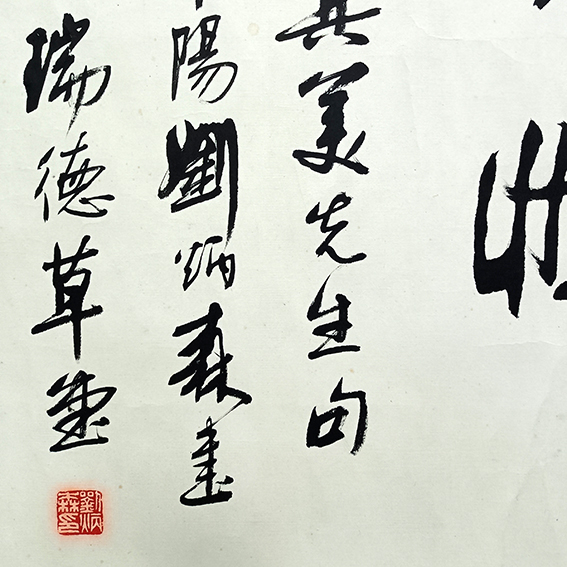 其美先生句
陽劉炳森書
瑞德草堂
劉炳森印